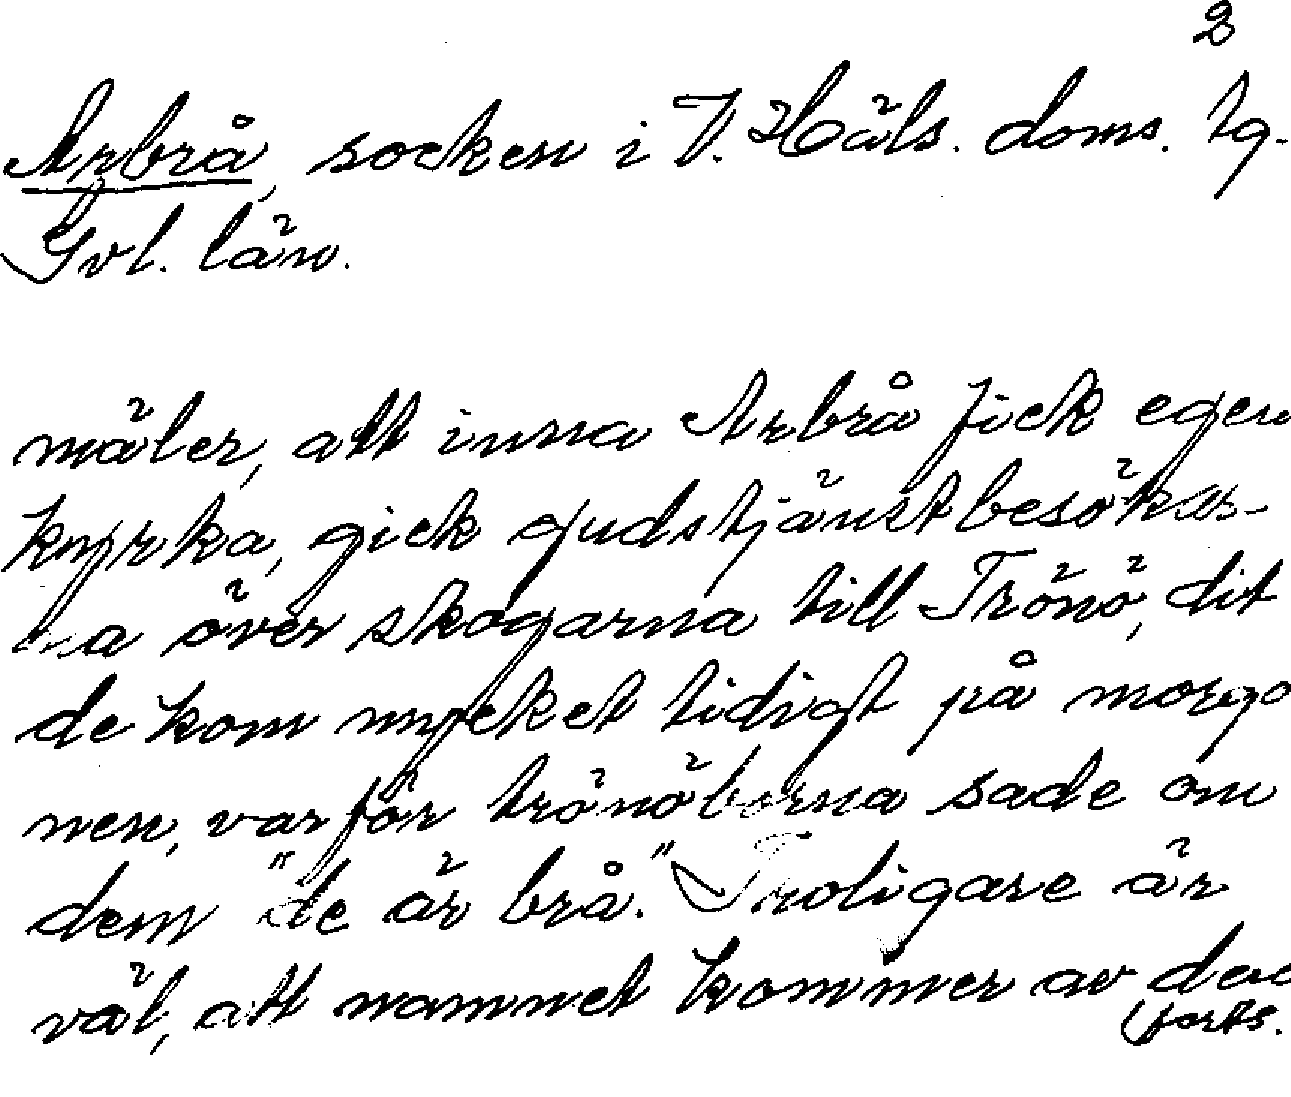 2
Arbrå, socken i V. Häls. doms. tg.
Gvl. län.
mäler, att inna Arbrå fick egen
kyrka, gick gudstjänstbesökar-
na över skogarna till Trönö, dit
de kom mycket tidigt på morgo
nen, varför trönöborna sade om
dem "de är brå." Troligare är
väl, att namnet kommer av den
(forts.